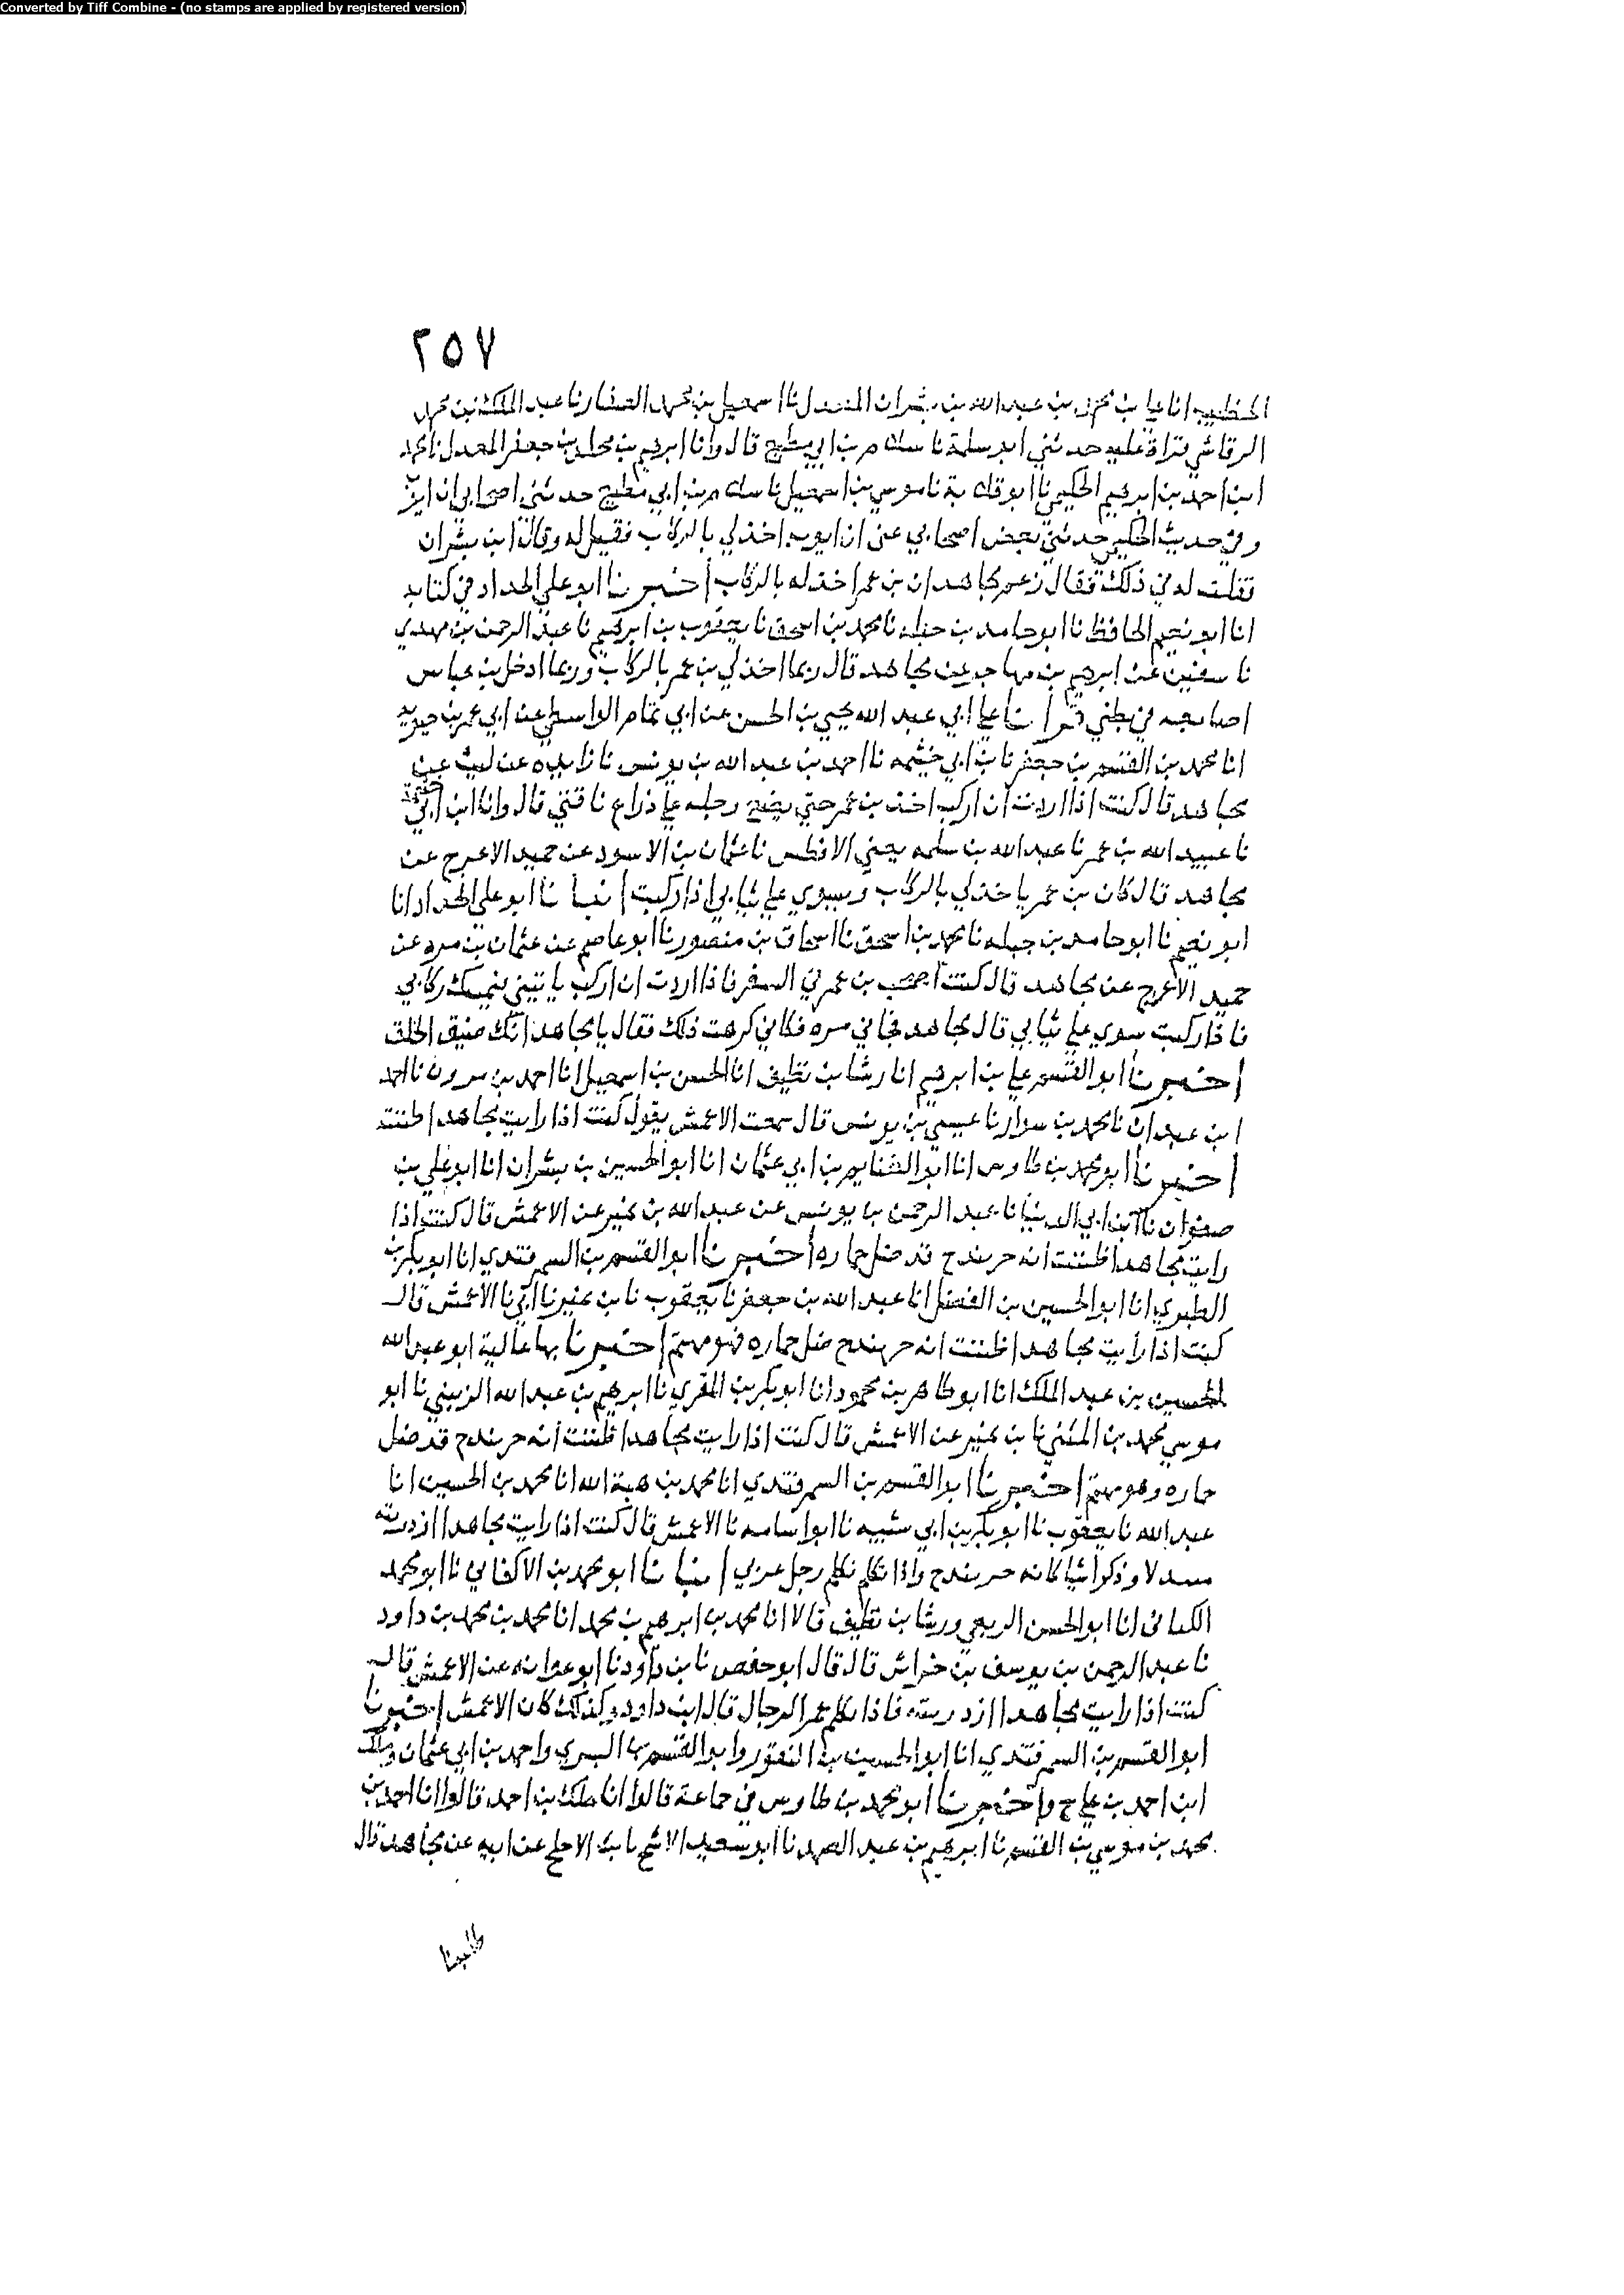 Converted by Tiff Combine - (no stamps are applied by registered version)
٢٥٧
الخطيب انا علي بن محمد بن عبد الله بن بشران المعدل نا اسمعيل بن محمد الصفار نا عبد الملك بن محمد
الرقاشي قراة عليه حدثني ابو سلمة نا سلام بن ابي مطيع قال وانا ابرهيم بن مخلد بن جعفر المعدل نا محمد
ابن احمد بن ابرهيم الحكيمي نا ابو قلابة نا موسي بن اسمعيل نا سلام بن ابي مطيع حدثني اصحابي ان ايوب
وفي حديث الحكيمي حدثني بعض اصحابي عن ان ايوب اخذ لي بالركاب فقيل له وقال ابن بشران
فقلت له في ذلك فقال زعم مجاهد ان بن عمر اخذ له بالركاب اخبرنا ابو علي الحداد في كتابه
انا ابو نعيم الحافظ نا ابو حامد بن جبله نا محمد بن اسحق نا يعقوب بن ابرهيم نا عبد الرحمن بن مهدي
نا سفين عن ابرهيم بن مهاجر عن مجاهد قال ربما اخذ لي بن عمر بالركاب وربما ادخل بن عباس
اصابعه في بطني قرانا علي ابي عبد الله يحيي بن الحسن عن ابي تمام الواسطي عن ابي عمر بن حيويه
انا محمد بن القسم بن جعفر نا بن ابي خيثمه نا احمد بن عبد الله بن يونس نا زايده عن ليث عن
مجاهد قال كنت اذا اردت ان اركب اخذ بن عمر حتي يضع رجله علي ذراع ناقتي قال وانا ابن ابي خيثمة
نا عبيد الله بن عمر نا عبد الله بن سلمه يعني الافطس نا عثمان بن الاسود عن حميد الاعرج عن
مجاهد قال كان بن عمر ياخذ لي بالركاب ويسوي علي ثيابي اذا ركبت انبانا ابو علي الحداد انا
ابو نعيم نا ابو حامد بن جبله نا محمد بن اسحق نا اسحاق بن منصور نا ابو عاصم عن عثمان بن مره عن
حميد الاعرج عن مجاهد قال كنت اصحب بن عمر في السفر فاذا اردت ان اركب ياتيني فيمسك ركابي
فاذا ركبت سوي علي ثيابي قال مجاهد فجاني مره فكاني كرهت ذلك فقال يا مجاهد انك ضيق الخلق
اخبرنا ابو القسم علي بن ابرهيم انا رشا بن نظيف انا الحسن بن اسمعيل انا احمد بن مروان نا احمد
ابن عبدان نا محمد بن سوار نا عيسي بن يونس قال سمعت الاعمش يقول كنت اذا رايت مجاهدا ظننت
اخبرنا ابو محمد بن طاوس انا ابو الغنايم بن ابي عثمان انا ابو الحسين بن بشران انا ابو علي بن
صفوان نا ابن ابي الدنيا نا عبد الرحمن بن يونس عن عبد الله بن نمير عن الاعمش قال كنت اذا
رايت مجاهدا ظننت انه خربندج قد ضل حماره اخبرنا ابو القسم بن السمرقندي انا ابو بكر بن
الطبري انا ابو الحسين بن الفضل انا عبد الله بن جعفر نا يعقوب نا بن نمير نا ابي نا الاعمش قال
كنت اذا رايت مجاهدا ظننت انه خربندج ضل حماره فهو مهتم اخبرنا بها عالية ابو عبد الله
الحسين بن عبد الملك انا ابو طاهر بن محمود انا ابو بكر بن المقري نا ابرهيم بن عبد الله الزبيبي نا ابو
موسي محمد بن المثني نا بن نمير عن الاعمش قال كنت اذا رايت مجاهدا ظننت انه خربندج قد ضل
حماره وهو مهتم اخبرنا ابو القسم بن السمرقندي انا محمد بن هبة الله انا محمد بن الحسين انا
عبد الله نا يعقوب نا ابو بكر بن ابي شيبه نا ابو اسامه نا الاعمش قال كنت اذا رايت مجاهدا ازدريته
وذكر اشيا كانه خربندج واذا تكلم تكلم رجل عربي انبانا ابو محمد بن الاكفاني نا ابو محمد
الكتاني انا ابو الحسن الربعي ورشا بن نظيف قالا انا محمد بن ابرهيم بن محمد انا محمد بن محمد بن داود
نا عبد الرحمن بن يوسف بن خراش قال قال ابو حفص نا بن داود نا ابو عوانه عن الاعمش قال
كنت اذا رايت مجاهدا ازدريته فاذا تكلم الرجال قال ابن داود وكذلك كان الاعمش اخبرنا
ابو القسم بن السمرقندي انا ابو الحسين بن النقور وابو القسم بن البسري واحمد بن ابي عثمان وملك
ابن احمد بن علي ح واخبرنا ابو محمد بن طاوس في جماعة قالوا انا ملك بن احمد قالوا انا احمد بن
محمد بن موسي بن القسم نا ابرهيم بن عبد الصمد نا ابو سعيد الاشج نا بن الاجلح عن ابيه عن مجاهد قال
طلبنا